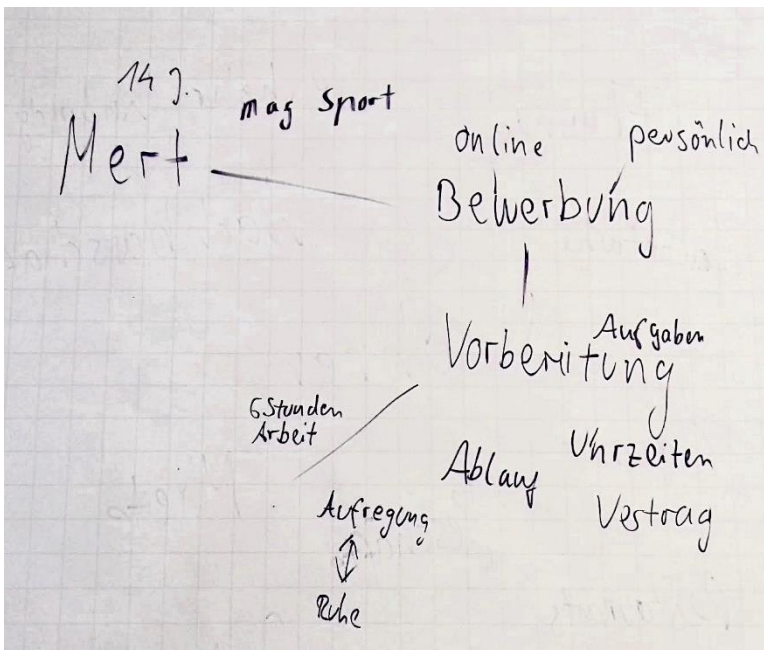 14 J.
mag Sport
Mert
online
persönlich
Bewerbung
Aufgaben
Vorbereitung
6 Stunden
Arbeit
Uhrzeiten
Ablauf
Vestrag
Aufregung
Ruhe